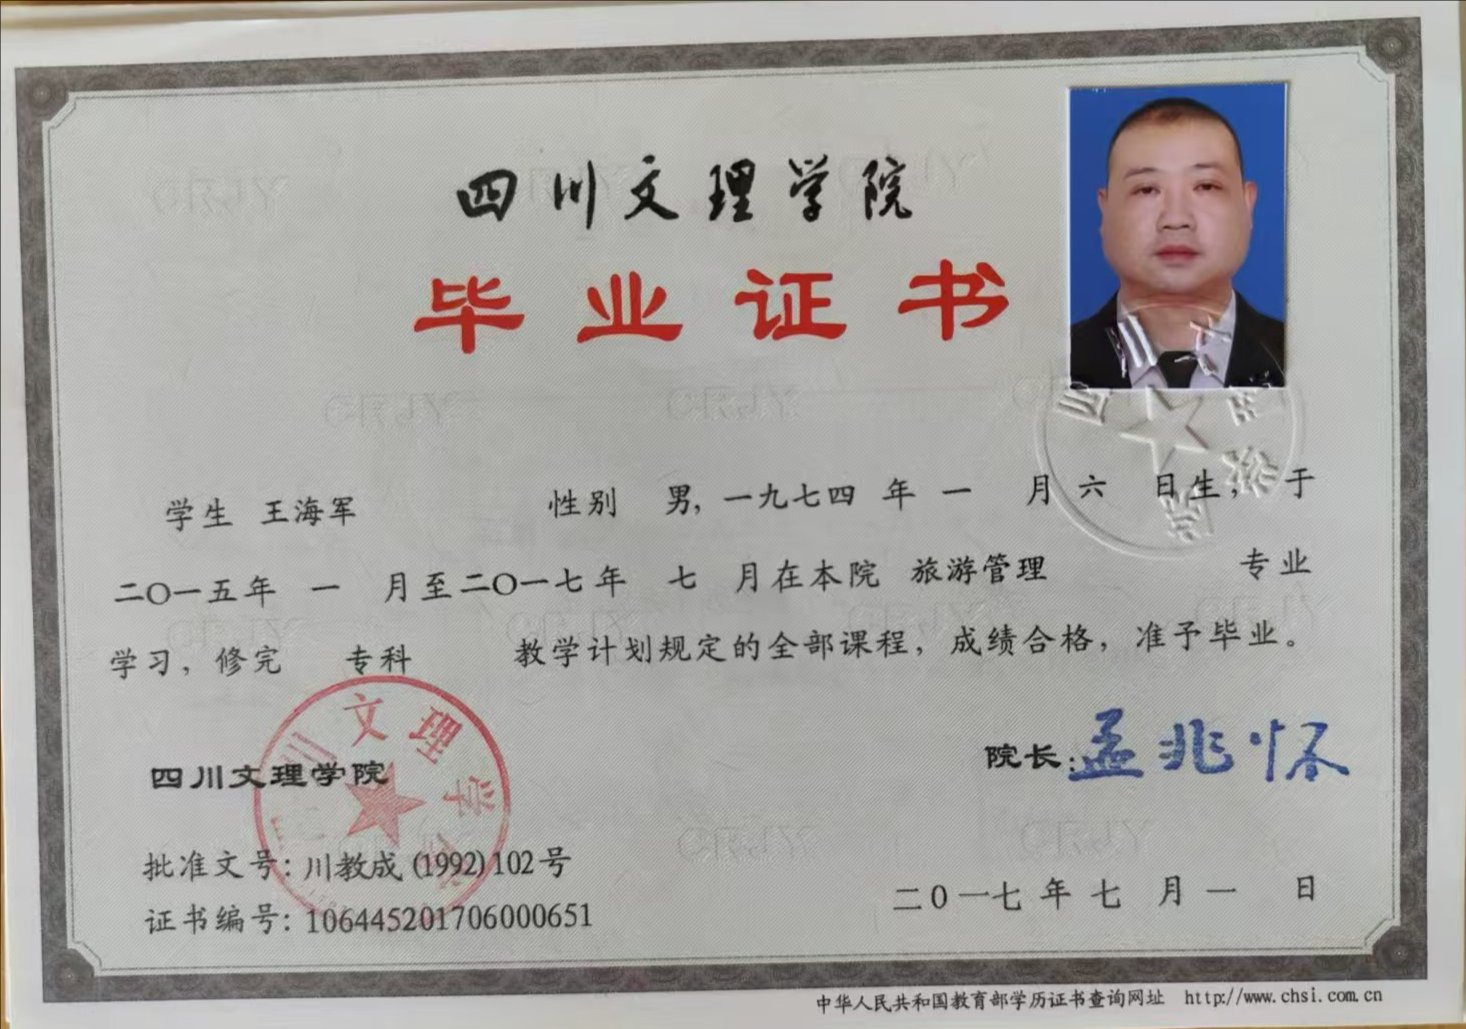 四川文理学院
毕业证书
学生 王海军 性别 男, 一九七四 年 一 月 六 日生, 于
二〇一五年 一 月至二〇一七年 七 月在本院 旅游管理 专业
学习, 修完 专科 教学计划规定的全部课程, 成绩合格, 准予毕业。
四川文理学院
院长: 孟兆怀
四川文理学院
批准文号: 川教成 (1992) 102 号
证书编号: 106445201706000651
二〇一七 年 七 月 一 日
中华人民共和国教育部学历证书查询网址 http://www.chsi.com.cn